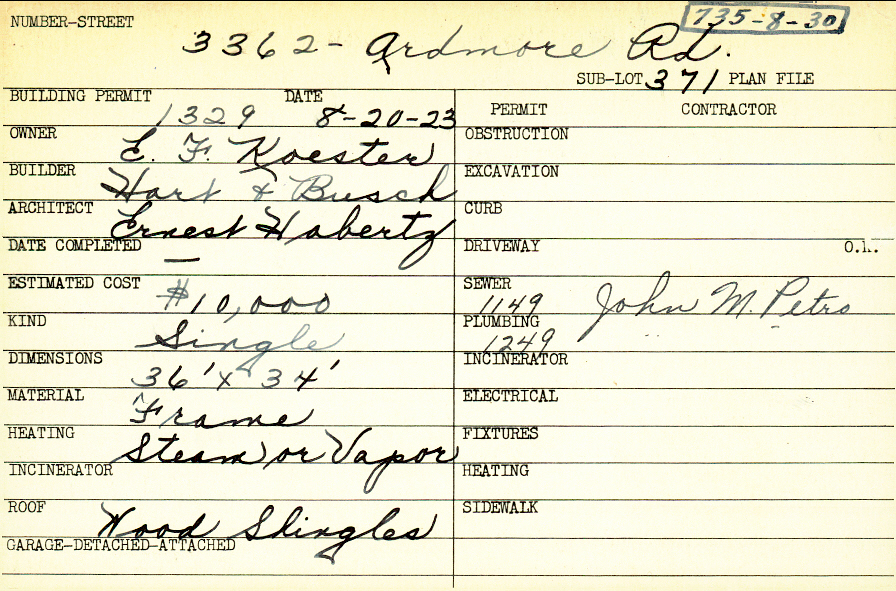 735-8-30
NUMBER-STREET 3362- Ardmore Rd.
SUB-LOT 371 PLAN FILE
BUILDING PERMIT 1329 DATE 8-20-23
OWNER E. F. Koester
BUILDER Hart & Busch
ARCHITECT Ernest Habertz
DATE COMPLETED —
ESTIMATED COST $10,000
KIND Single
DIMENSIONS 36'x 34'
MATERIAL Frame
HEATING Steam or Vapor
INCINERATOR
ROOF Wood Shingles
GARAGE-DETACHED-ATTACHED
PERMIT CONTRACTOR
OBSTRUCTION
EXCAVATION
CURB
DRIVEWAY O.K.
SEWER 1149 John M. Petro
PLUMBING 1249
INCINERATOR
ELECTRICAL
FIXTURES
HEATING
SIDEWALK